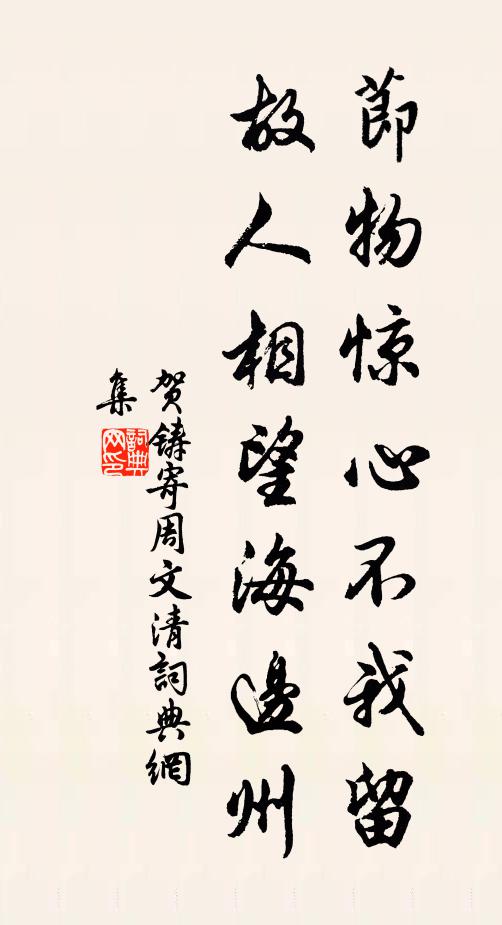 節物惊心不我留
故人相望海邊州
贺鑄寄周文清詞典網
集
詞典
网印